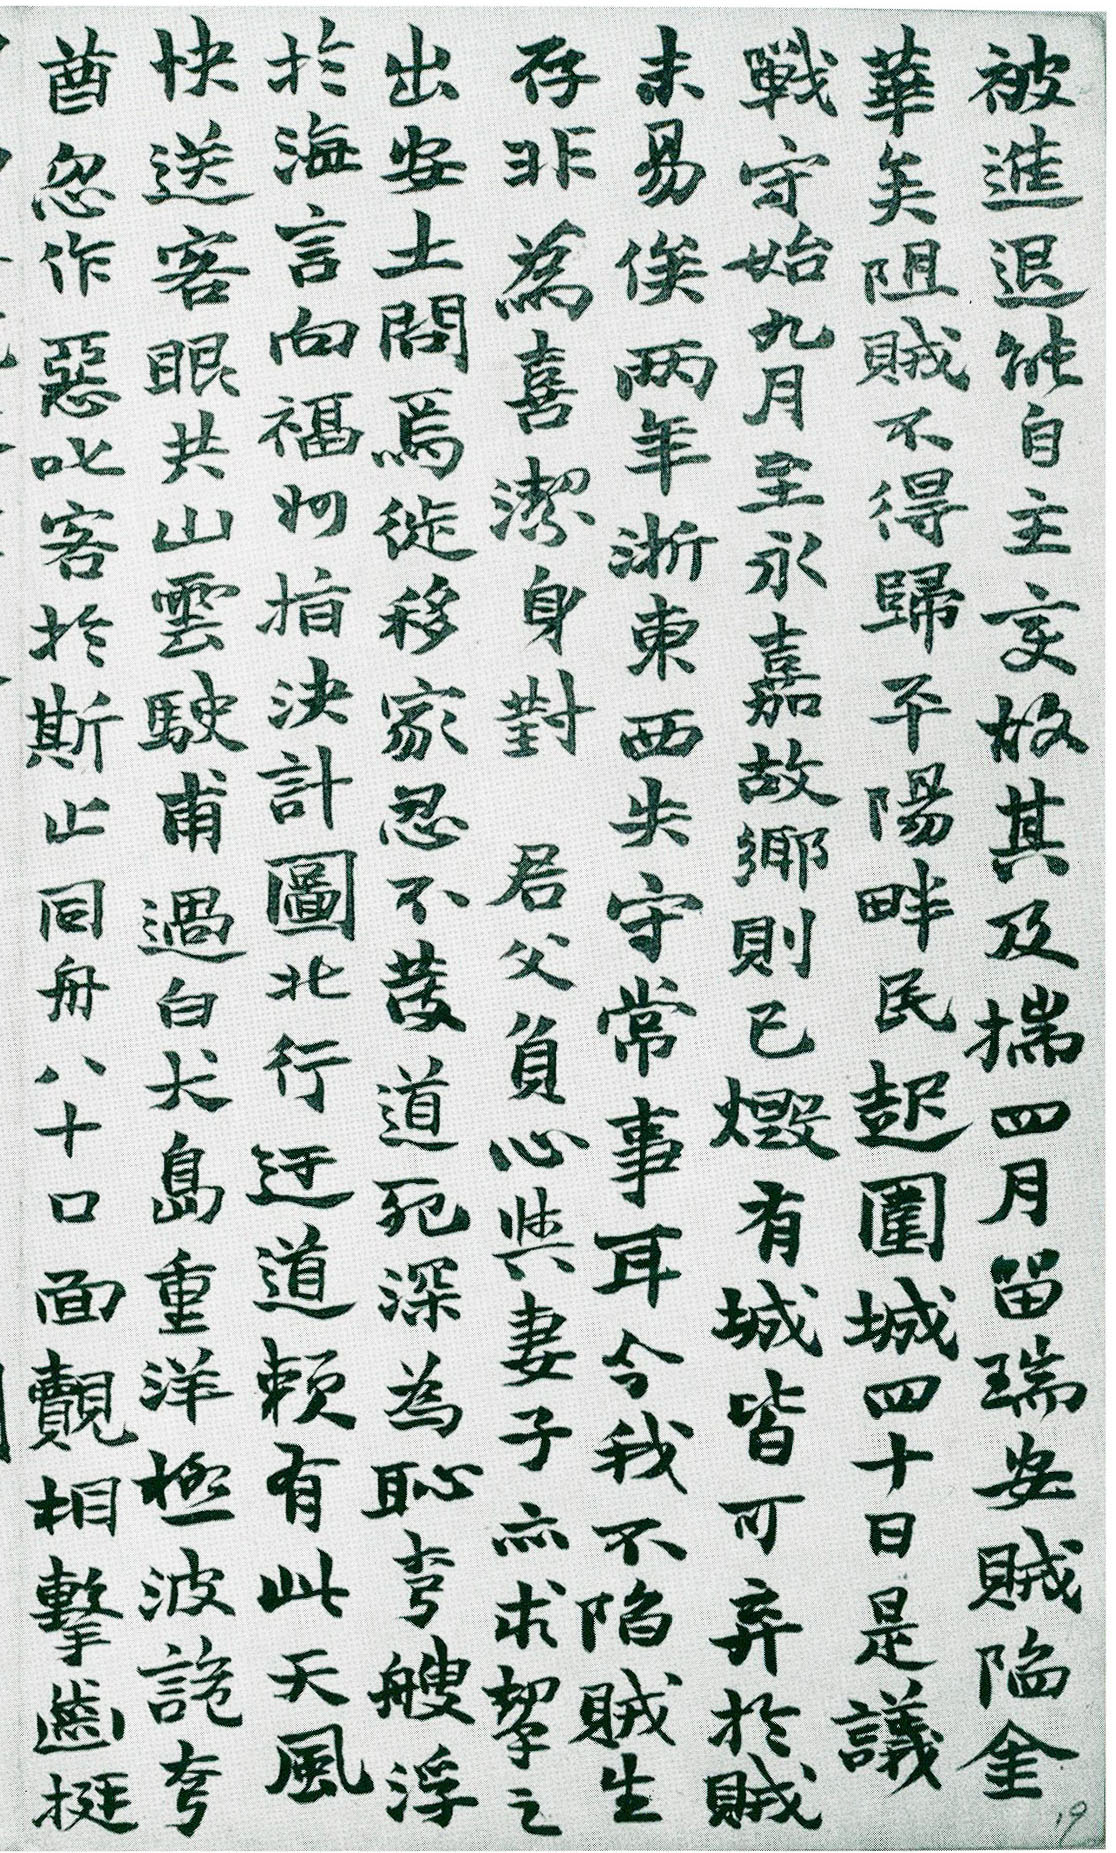 被進退能自主交故其及揣四月留瑞安賊陷金
華矣阻賊不得歸平陽畔民起圍城四十日是議
戰守始九月至永嘉故鄉則已燬有城皆可弃於賊
未易俟兩年浙東西失守常事耳今我不陷賊生
存非為喜潔身對君父負心與妻子亦求挈之
出安土問焉徙移家忍不發道死深為恥雩艘浮
於海言向福州指決計圖北行迂道賴有此天風
快送客眼共山雲駛甫過白犬島重洋極波詭夸
酋忽作惡叱客於斯止同舟八十口面覿相擊齒挺
19